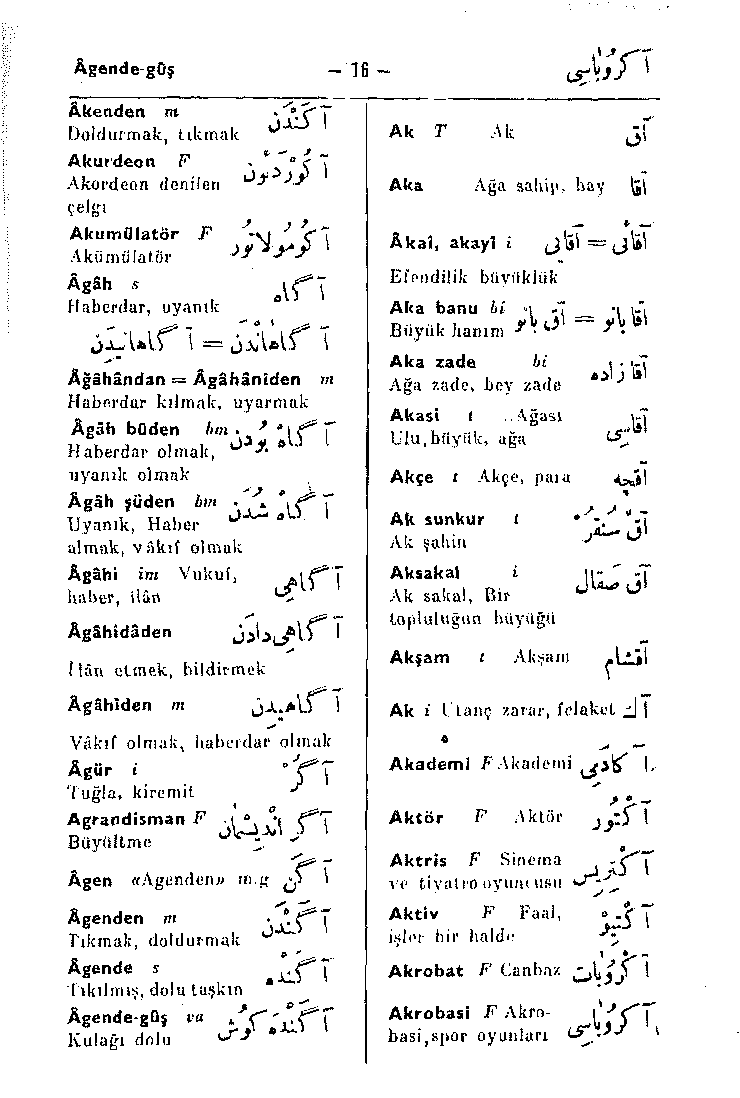 Âgende-gûş – 16 – آ کروباسی
Âkenden m آ کَنْدَن
Doldurmak, tıkmak
Akurdeon F آ کوُرْدِئوُن
Akordeon denilen
çelgı
Akumûlatör F آ کوُموُلاتوُر
Akümülatör
Âgâh s آ گاه
Haberdar, uyanık
آ گاهانْدَن = آ گاهانیدَن
Âğâhândan = Âgâhâniden m
Haberdar kılmak, uyarmak
Âgâh bûden bm آ گاه بوُدَن
Haberdar olmak,
uyanık olmak
Âgâh şüden bm آ گاه شُدَن
Uyanık, Haber
almak, vâkıf olmak
Âgâhi im Vukuf, آ گاهی
haber, ilân
Âgâhîdâden آ گاهی دادَن
İlân etmek, bildirmek
Âgâhîden m آ گاهیدن
Vâkıf olmak, haberdar olmak
Âgür i آ گُر
Tuğla, kiremit
Agrandisman F آ گراندیسمان
Büyültme
Âgen «Agenden» m.g آ گن
Âgenden m آ گَنْدَن
Tıkmak, doldurmak
Âgende s آ گَنْدَه
Tıkılmış, dolu taşkın
Âgende-gûş va آ گَنْدَه گوُش
Kulağı dolu
Ak T Ak آق
Aka Ağa sahip, bay آقا
Âkaî, akayî i آقائی = آقاُی
Efendilik büyüklük
Aka banu bi آقا بانو = آق بانو
Büyük hanım
Aka zade bi آقا زاده
Ağa zade, bey zade
Akasi t ..Ağası آقاسی
Ulu,büyük, ağa
Akçe t Akçe, para آقچه
Ak sunkur t آق سُنقُر
Ak şahin
Aksakal i آق صقال
Ak sakal, Bir
topluluğun büyüğü
Akşam t Akşam آقشام
Ak i Utanç zarar, felaket آك
Akademi F Akademi آ کادِمی
Aktör F Aktör آ کتوُر
Aktris F Sinema آ کتریس
ve tiyatro oyuncusu
Aktiv F Faal, آ کتیو
işler bir halde
Akrobat F Canbaz آ کروُبات
Akrobasi F Akro- آ کروُباسی
basi,spor oyunları